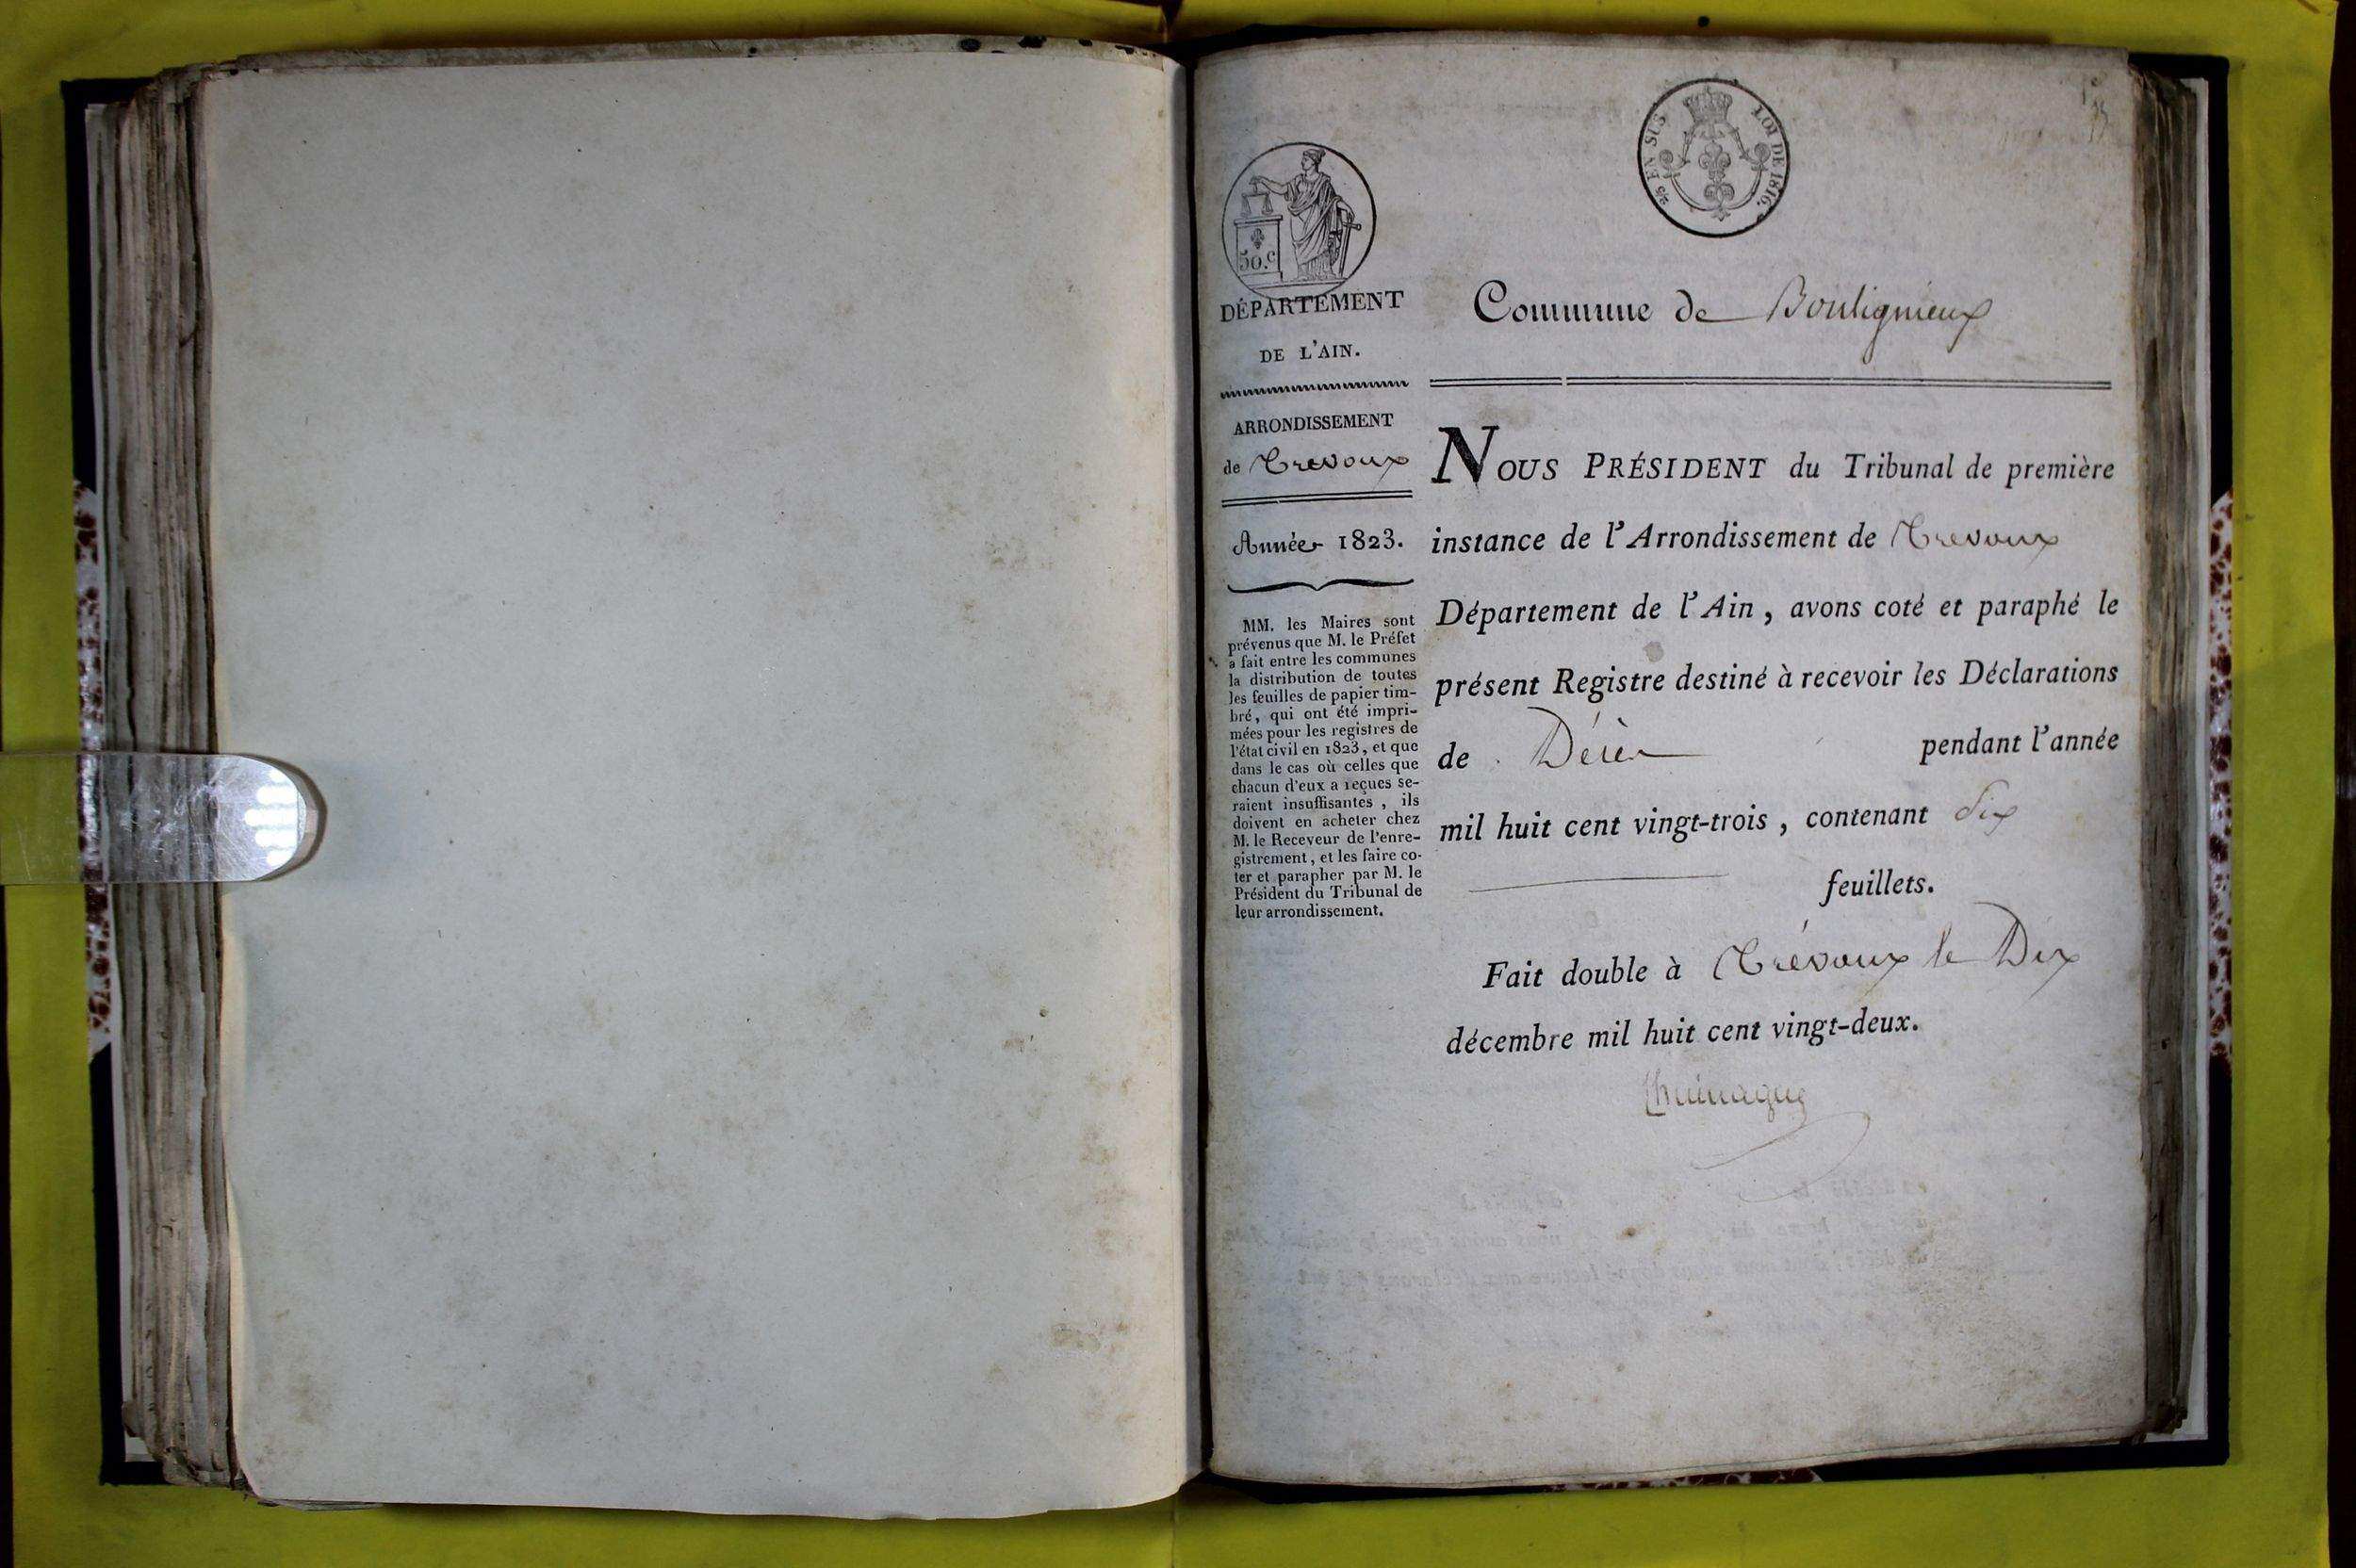 5/e EN SUS LOI DE 1816.
50.c
DÉPARTEMENT
DE L'AIN.
ARRONDISSEMENT
de Trevoux
Année 1823.
MM. les Maires sont
prévenus que M. le Préfet
a fait entre les communes
la distribution de toutes
les feuilles de papier tim-
bré, qui ont été impri-
mées pour les registres de
l'état civil en 1823, et que
dans le cas où celles que
chacun d'eux a reçues se-
raient insuffisantes, ils
doivent en acheter chez
M. le Receveur de l'enre-
gistrement, et les faire co-
ter et parapher par M. le
Président du Tribunal de
leur arrondissement.
Commune de Bouligneux
NOUS PRÉSIDENT du Tribunal de première
instance de l'Arrondissement de Trevoux
Département de l'Ain, avons coté et paraphé le
présent Registre destiné à recevoir les Déclarations
de Décès pendant l'année
mil huit cent vingt-trois, contenant six
feuillets.
Fait double à Trévoux le Dix
décembre mil huit cent vingt-deux.